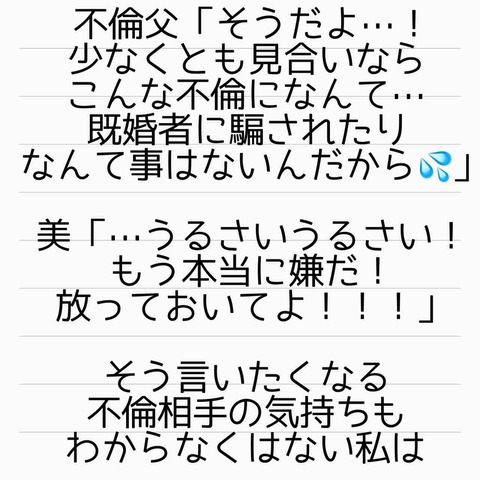 不倫父「そうだよ…！
少なくとも見合いなら
こんな不倫になんて…
既婚者に騙されたり
なんて事はないんだから💦」
美「…うるさいうるさい！
もう本当に嫌だ！
放っておいてよ！！！」
そう言いたくなる
不倫相手の気持ちも
わからなくはない私は